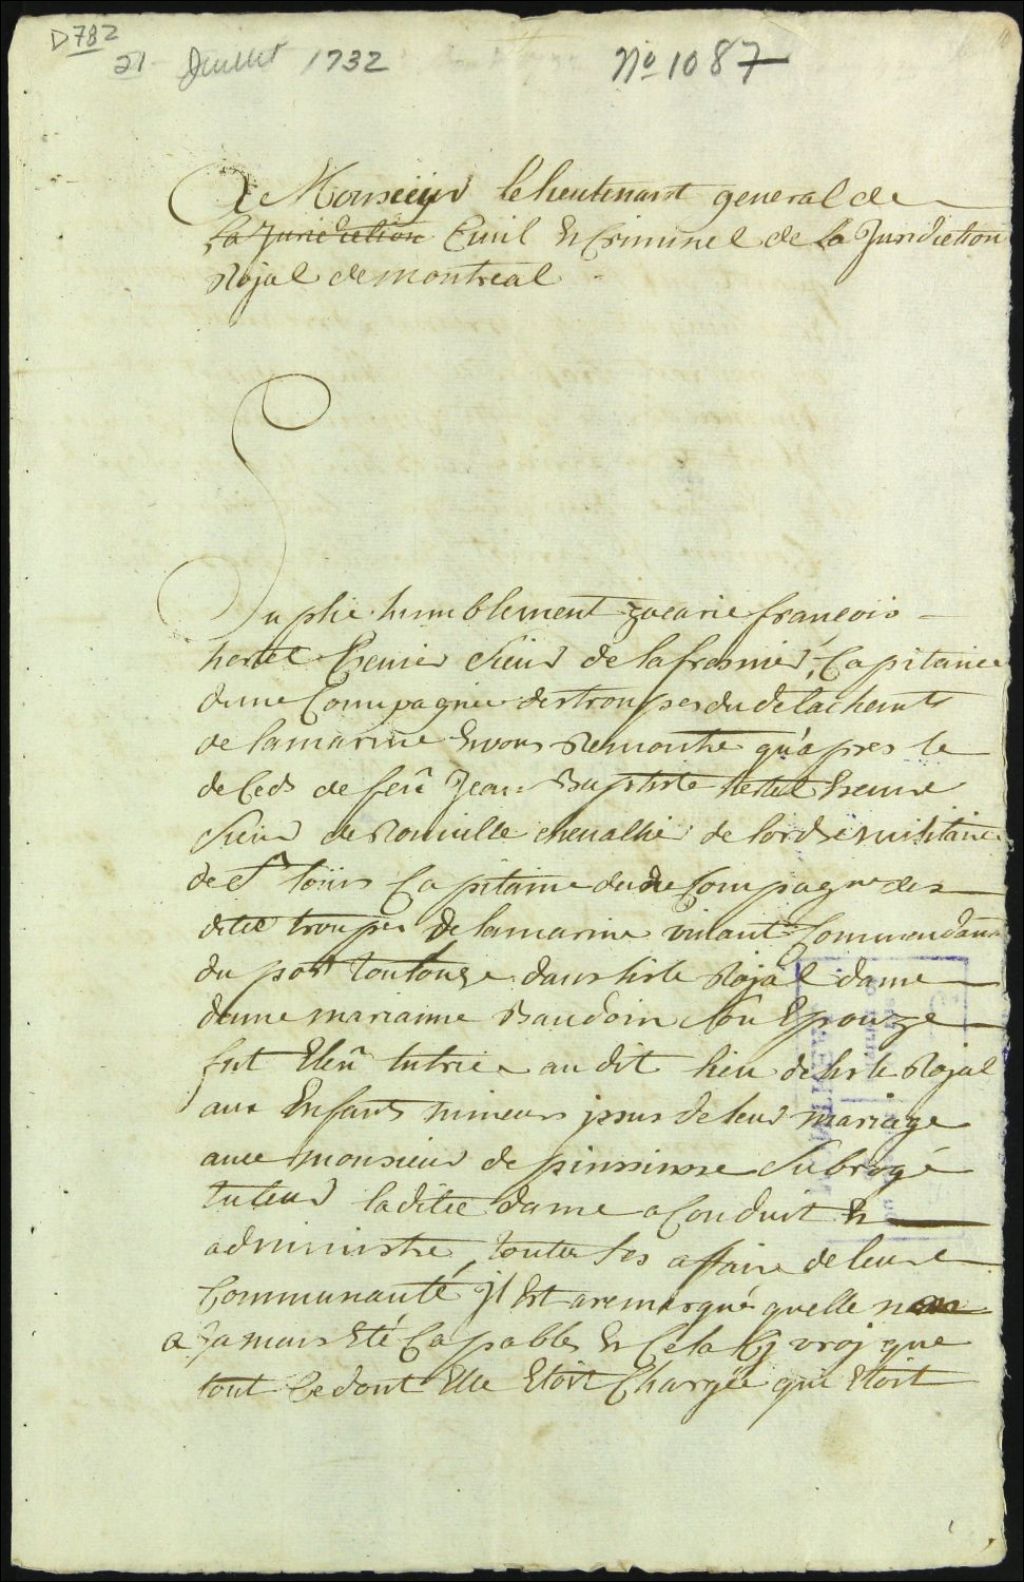 D782
21 Juillet 1732 No 1087
A Monsieur le lieutenant general de
la Juridiction Civil et Criminel de la Juridiction
Rojal de montreal
Suplie humblement zacarie francois
hertel Ecuier sieur de la fresnier, Capitaine
dune Compagnie des troupes du detachemt
de la marine et vous Remontre qu'apres le
deceds de feu Jean Baptiste hertel Ecuier
sieur de Rouville chevallié de lordre militaire
de St loüis Capitaine dune Compagne des
dites troupes de la marine vivant Commendant
du port toulouze dans lisle Rojal dame
damne marianne Baudoin son Epouze
fut Eleu tutrice au dit lieu de lisle Rojal
aux Enfants mineurs issus de leur mariage
avec monsieur de subrogé
tuteur la ditte dame a Conduit Et
administré toutes les affaire de leure
Communauté, jl Est a remarqué quelle n
a Jamais Eté Capable Et Cela Cj vroj que
tout Ce dont Elle Etoit Chargée qui Etoit